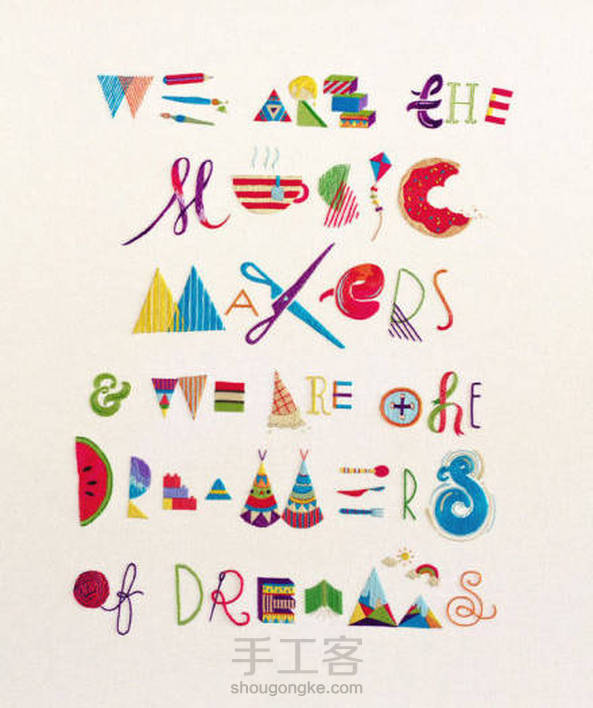 WE ARE tHE
MUSIC
MAKeRS
& WE ARE THE
DREAMERS
of DREAMS
手工客
shougongke.com